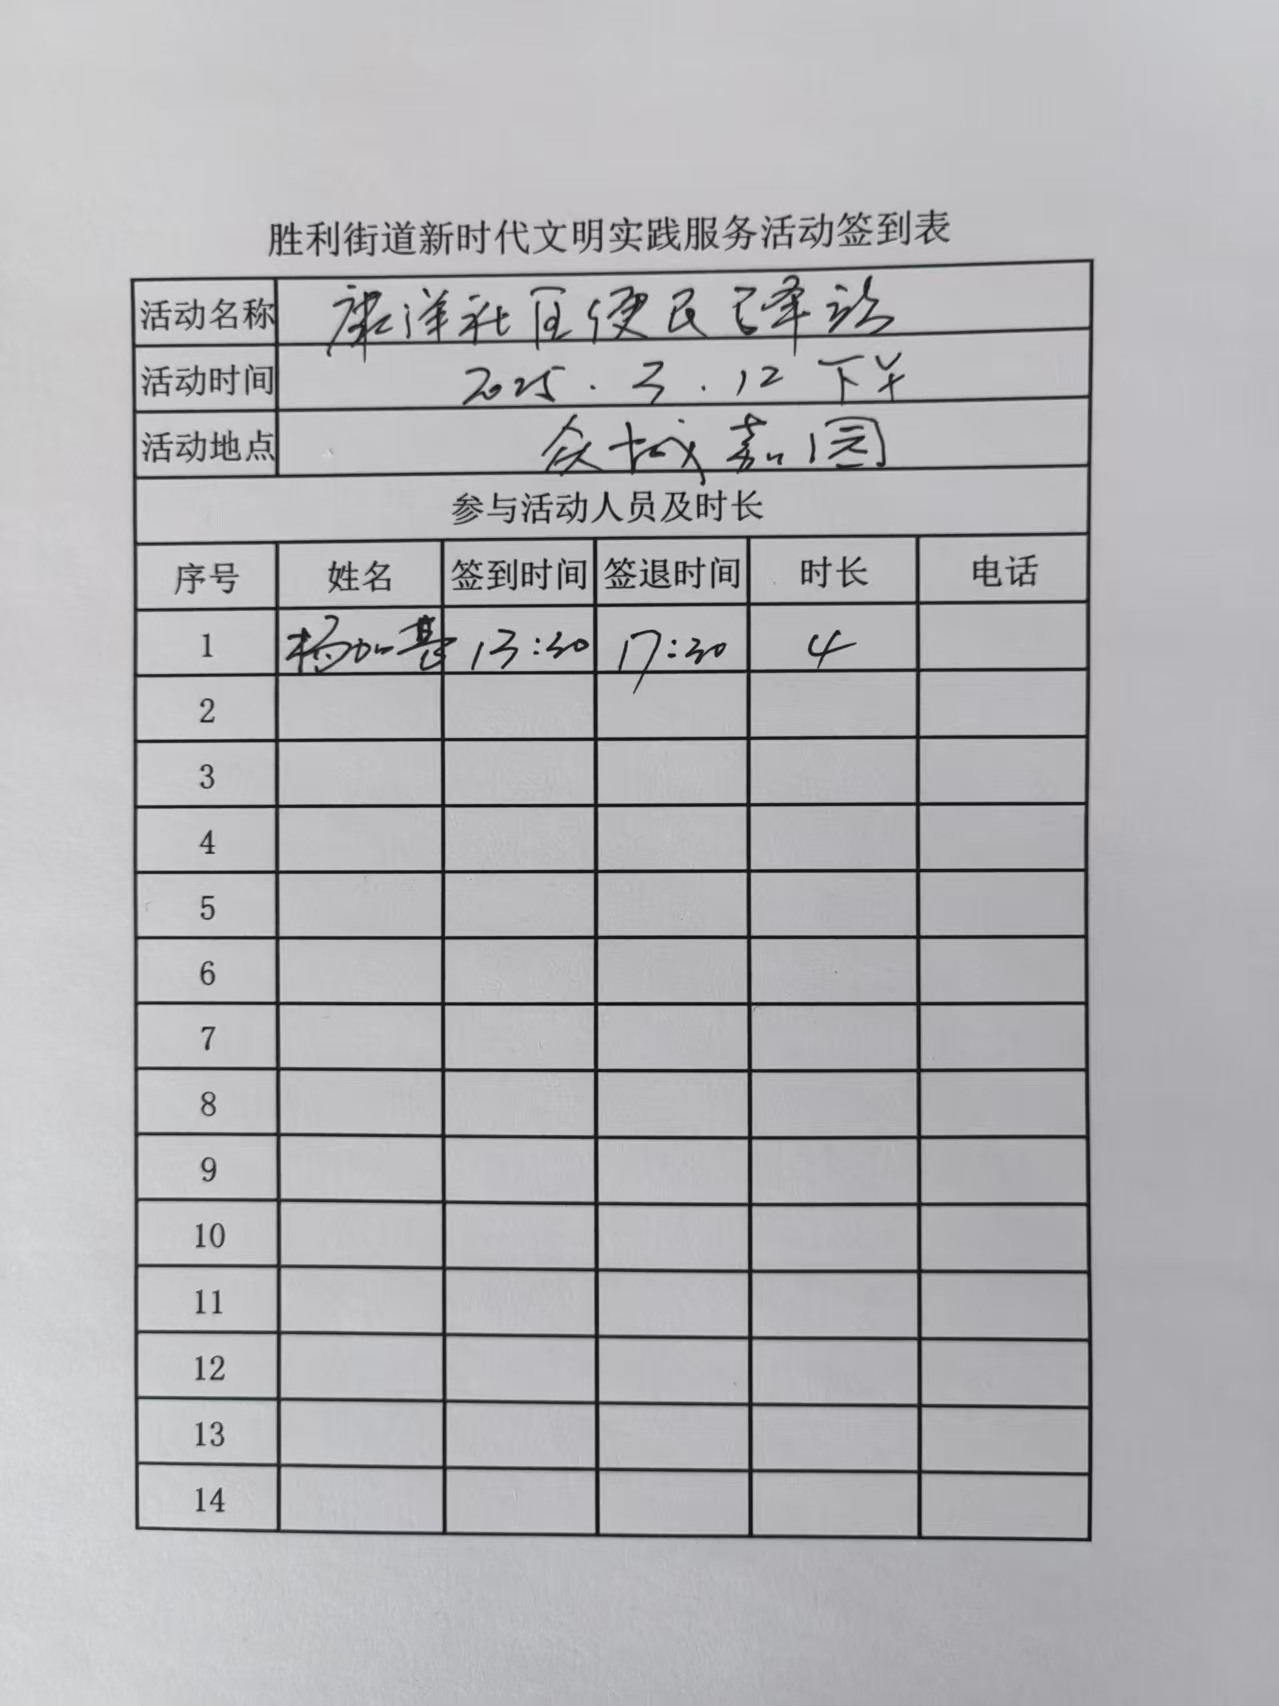 胜利街道新时代文明实践服务活动签到表
活动名称 康洋社区便民驿站
活动时间 2025.3.12 下午
活动地点 众城嘉园
参与活动人员及时长
序号 姓名 签到时间 签退时间 时长 电话
1 杨加基 13:30 17:30 4
2
3
4
5
6
7
8
9
10
11
12
13
14